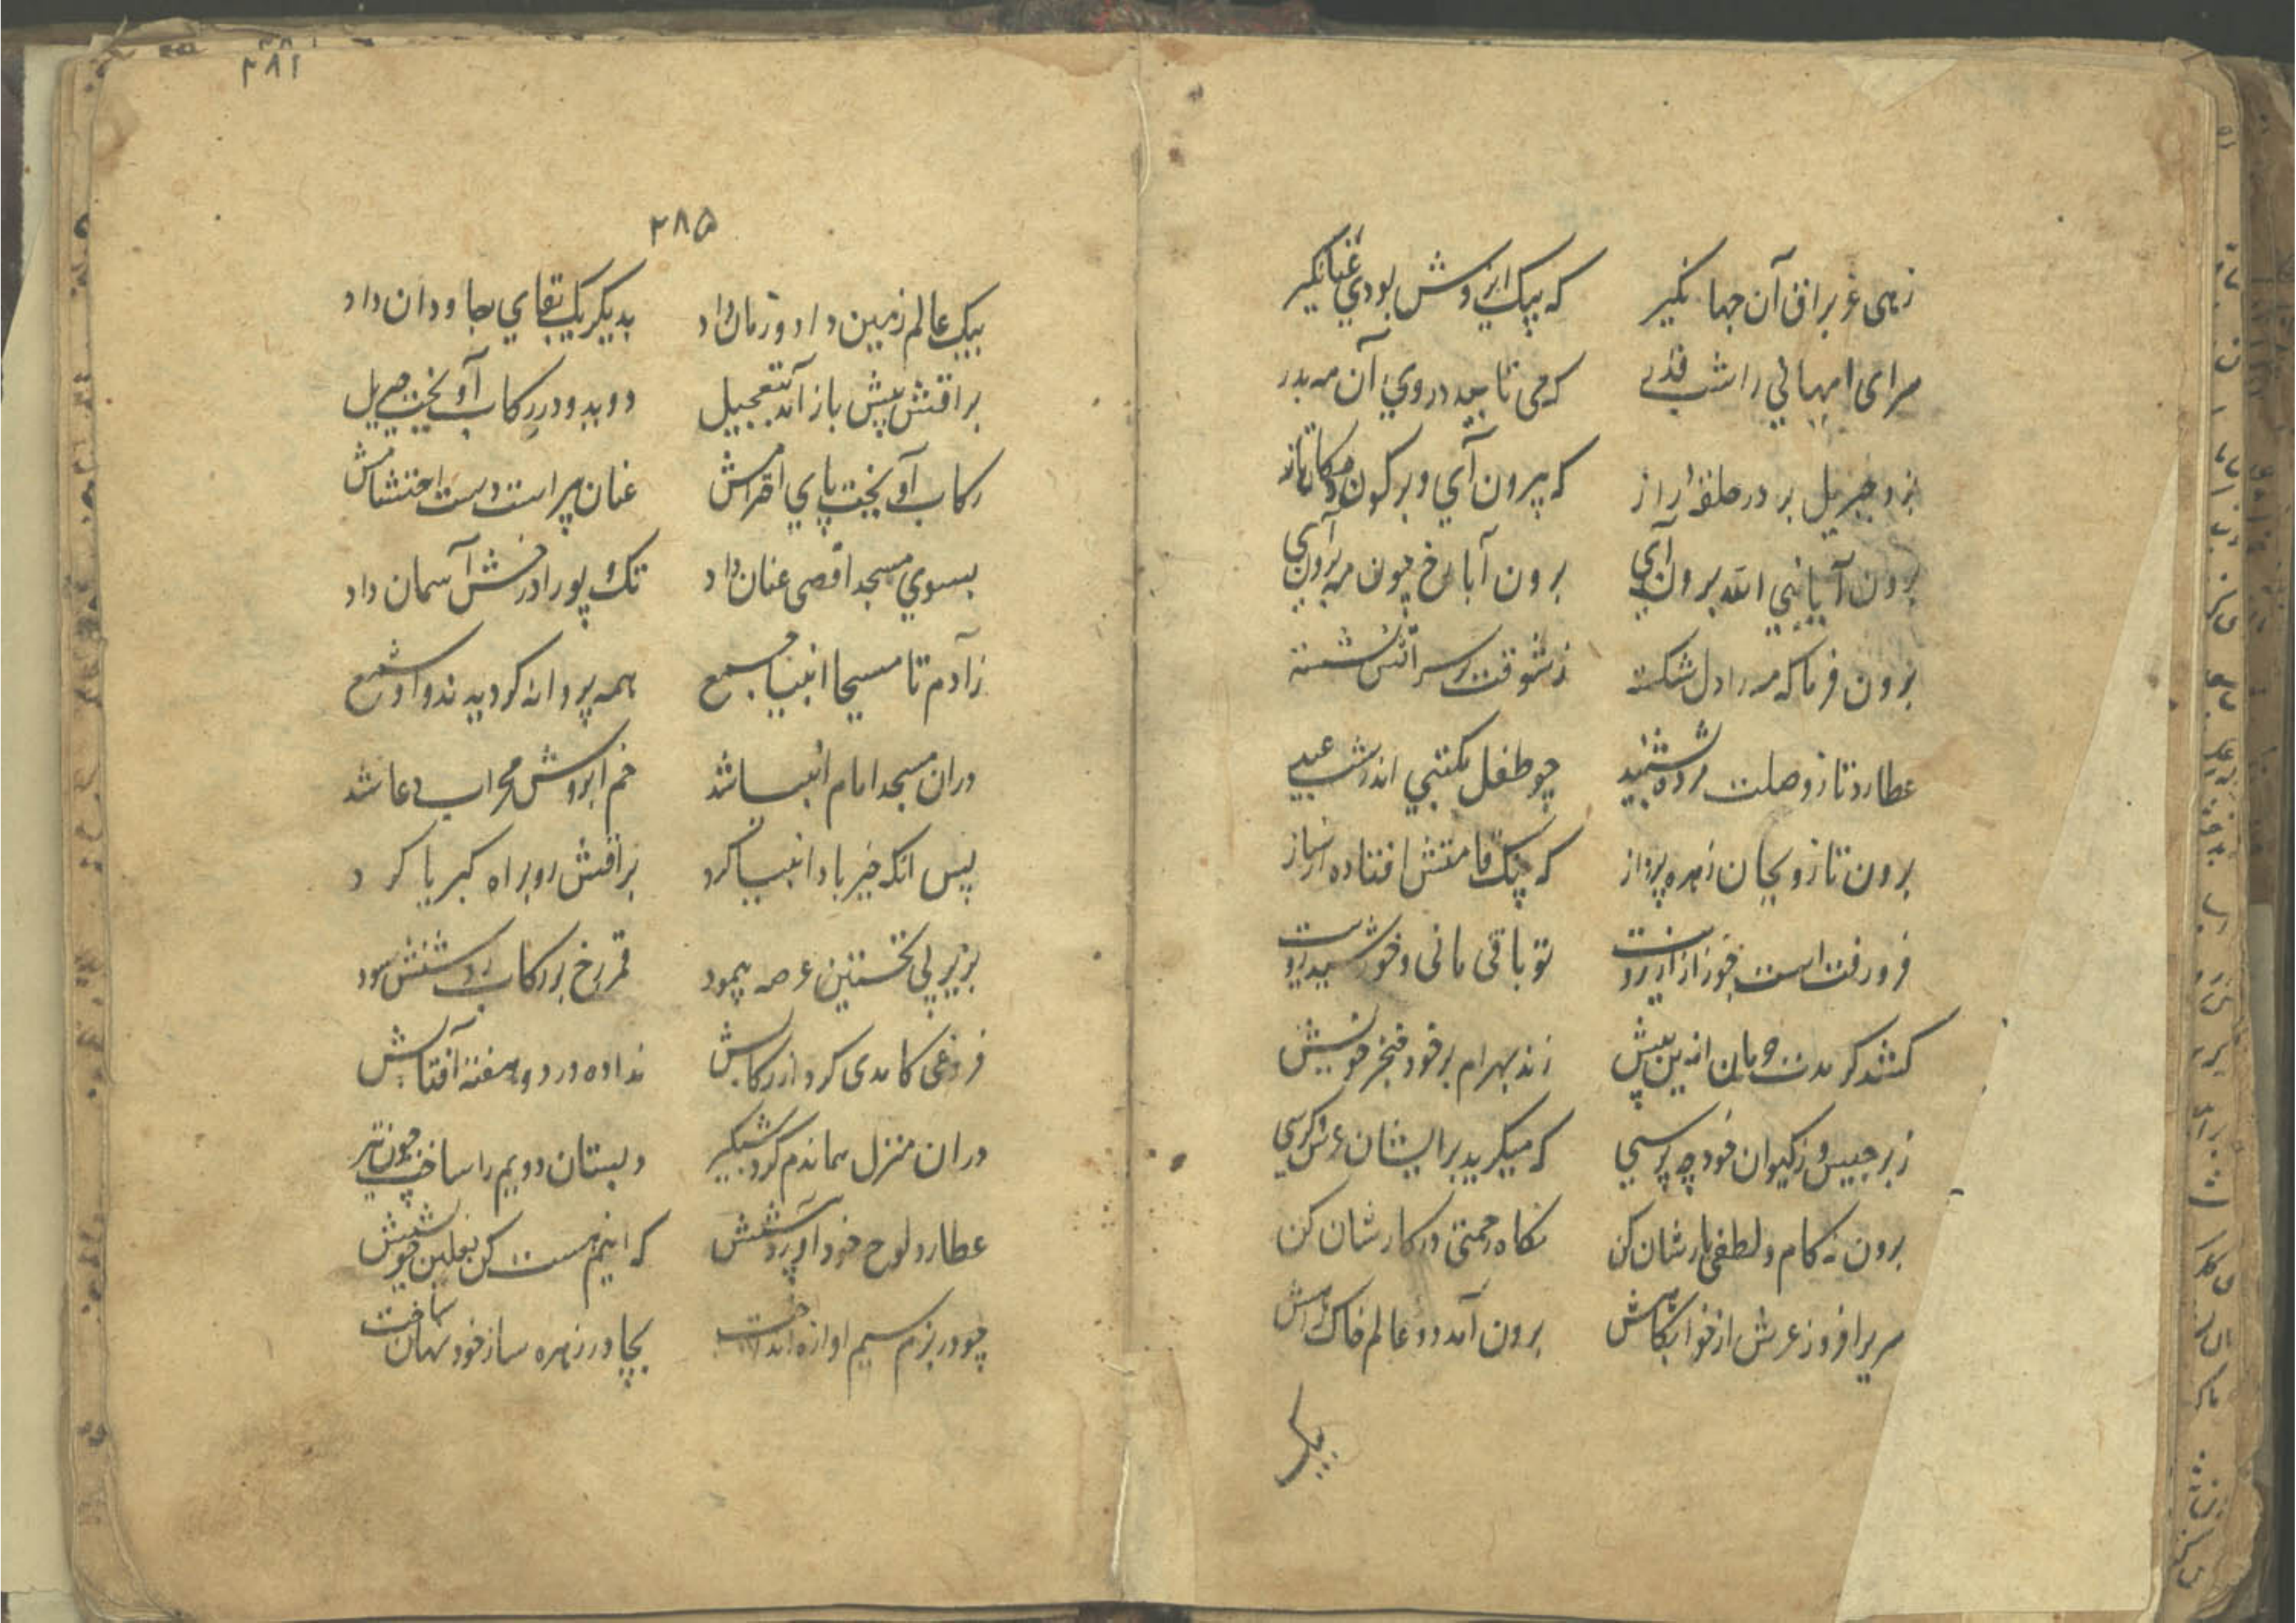 زهی عز براق آن جهانگیر که پیک ایزدش بودی عنانگیر
سرای امهانی را شب قدر که می تابید در وی آن مه بدر
بزد جبریل بر در حلقه راز که بیرون آی و بر کون و مکان تاز
برون آ یا نبی الله برون آی برون آ با رخ چون مه برون آی
برون فرما که مه را دل شکسته ز شوقت بر سر آتش نشسته
عطارد تا ز وصلت مژده بشنید چو طفل مکتبی اندر شب عید
برون تاز و بجان زهره پرداز که چنگ قامتش افتاده از ساز
فرو رفت است خور از آرزویت تو باقی مانی و خورشید رویت
کشد گر مدت حرمان ازین بیش زند بهرام بر خود خنجر خویش
ز برجیس و ز کیوان خود چه پرسی که میگرید بر ایشان عرش و کرسی
برون نه گام و لطفی یارشان کن نگاه رحمتی در کارشان کن
سریر افروز عرش از خوابگاهش برون آمد دو عالم خاک راهش
بیک
۲۸۱
۲۸۵
بیک عالم زمین داد و زمان داد بدیگر یک بقای جاودان داد
براقش پیش باز آمد بتعجیل دوید و در رکاب آویخت جبریل
رکاب آویخت پای احترامش عنان پیراست دست احتشامش
بسوی مسجد اقصی عنان داد تک و پو را درخش آسمان داد
ز آدم تا مسیحا انبیا جمع همه پروانه گردیدند و او شمع
دران مسجد امام انبیا شد خم ابروش محراب دعا شد
پس آنکه خیرباد انبیا کرد براقش رو براه کبریا کرد
بزیر پی نخستین عرصه پیمود قمر رخ بر رکاب روشنش سود
فروغی کامدی کرد از رکابش نداده در دو هفته آفتابش
دران منزل هماندم کرد شبگیر دبستان دویم را ساخت چون تیر
عطارد لوح خود آورد پیشش که اینم هست کن نعلین خویشش
چو در بزم سیم آوازه انداخت بچادر زهره ساز خود نهان ساخت